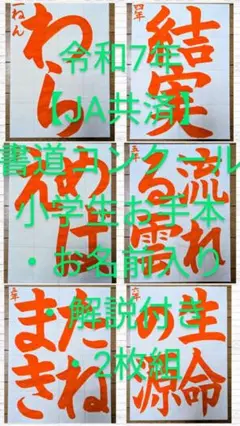 令和7年
【JA共済】
書道コンクール
小学生お手本
・お名前入り
・解説付き
・2枚組
一ねん
わら
四年
結実
めばえ
五年
流れ
る雲
三年
たね
まき
六年
生命
の源